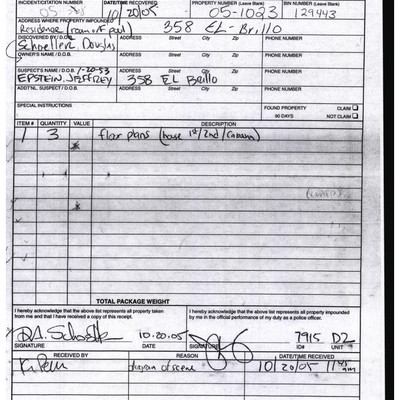 INCIDENT/CITATION NUMBER DATE/TIME RECOVERED PROPERTY NUMBER (Leave Blank) BIN NUMBER (Leave Blank)
05 10/20/05 05-1023 129443
ADDRESS WHERE PROPERTY IMPOUNDED
Residence 358 EL-Brillo
DISCOVERED BY / D.O.B. ADDRESS Street City Zip PHONE NUMBER
Schoeller, Douglas
OWNER'S NAME / D.O.B. ADDRESS Street City Zip PHONE NUMBER
SUSPECT'S NAME / D.O.B. 1-20-53 ADDRESS Street City Zip PHONE NUMBER
EPSTEIN, JEFFREY 358 EL Brillo
ADDT'NL. SUSPECT / D.O.B. ADDRESS Street City Zip PHONE NUMBER
SPECIAL INSTRUCTIONS FOUND PROPERTY CLAIM
90 DAYS NOT CLAIM
ITEM # QUANTITY VALUE DESCRIPTION
1 3 floor plans (house 1st/2nd/Cabana)
TOTAL PACKAGE WEIGHT
I hereby acknowledge that the above list represents all property taken from me and that I have received a copy of this receipt.
I hereby acknowledge that the above list represents all property impounded by me in the official performance of my duty as a police officer.
10-20-05 7915 D2
SIGNATURE DATE SIGNATURE ID# UNIT
RECEIVED BY REASON DATE/TIME RECEIVED
diagram of scene 10/20/05